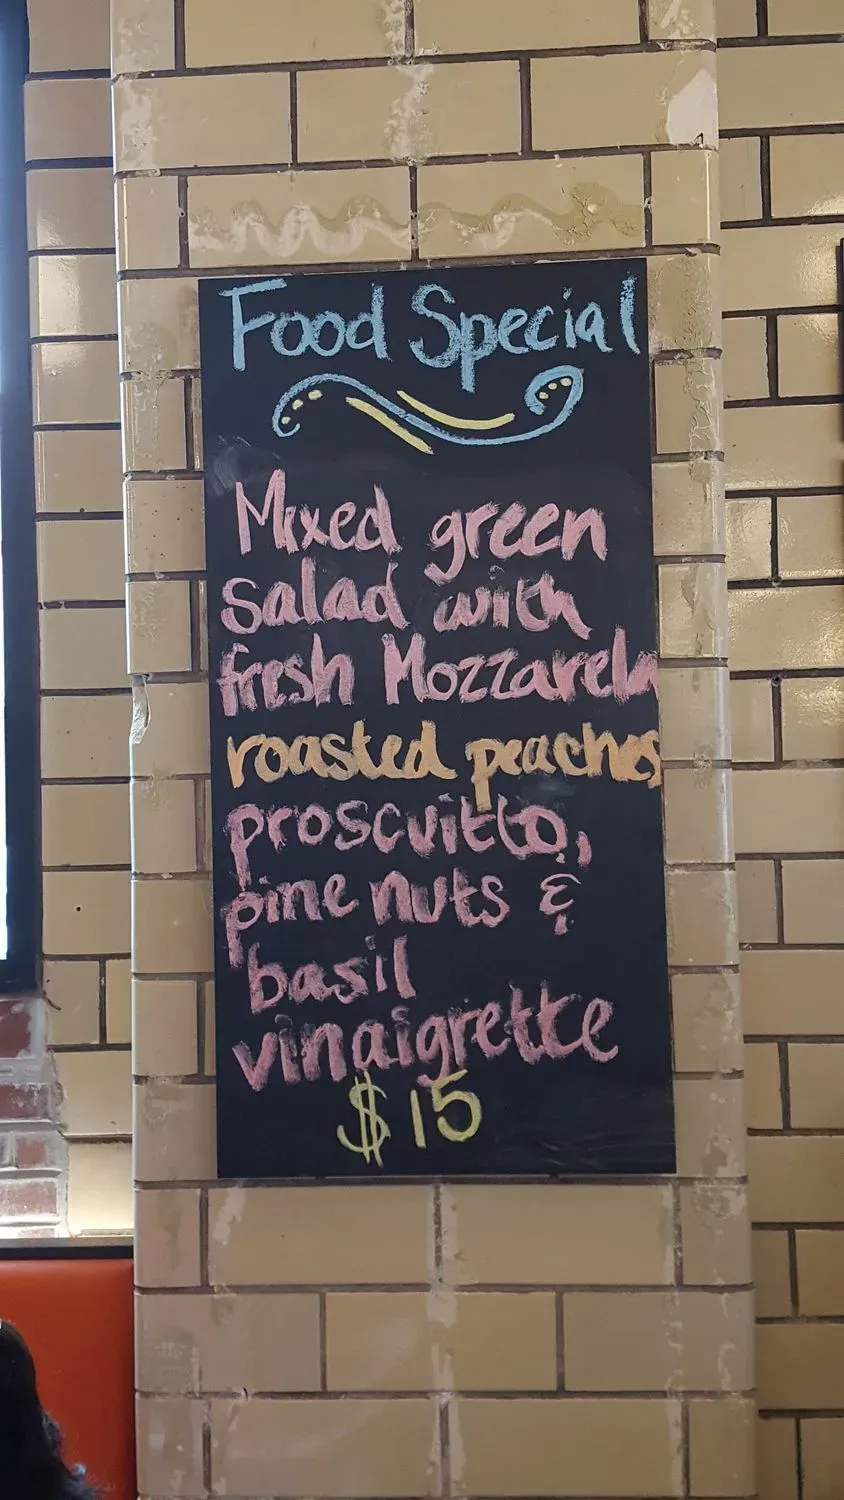 Food Special
Mixed green
salad with
fresh Mozzarela
roasted peaches
proscuitto,
pine nuts &
basil
vinaigrette
$15